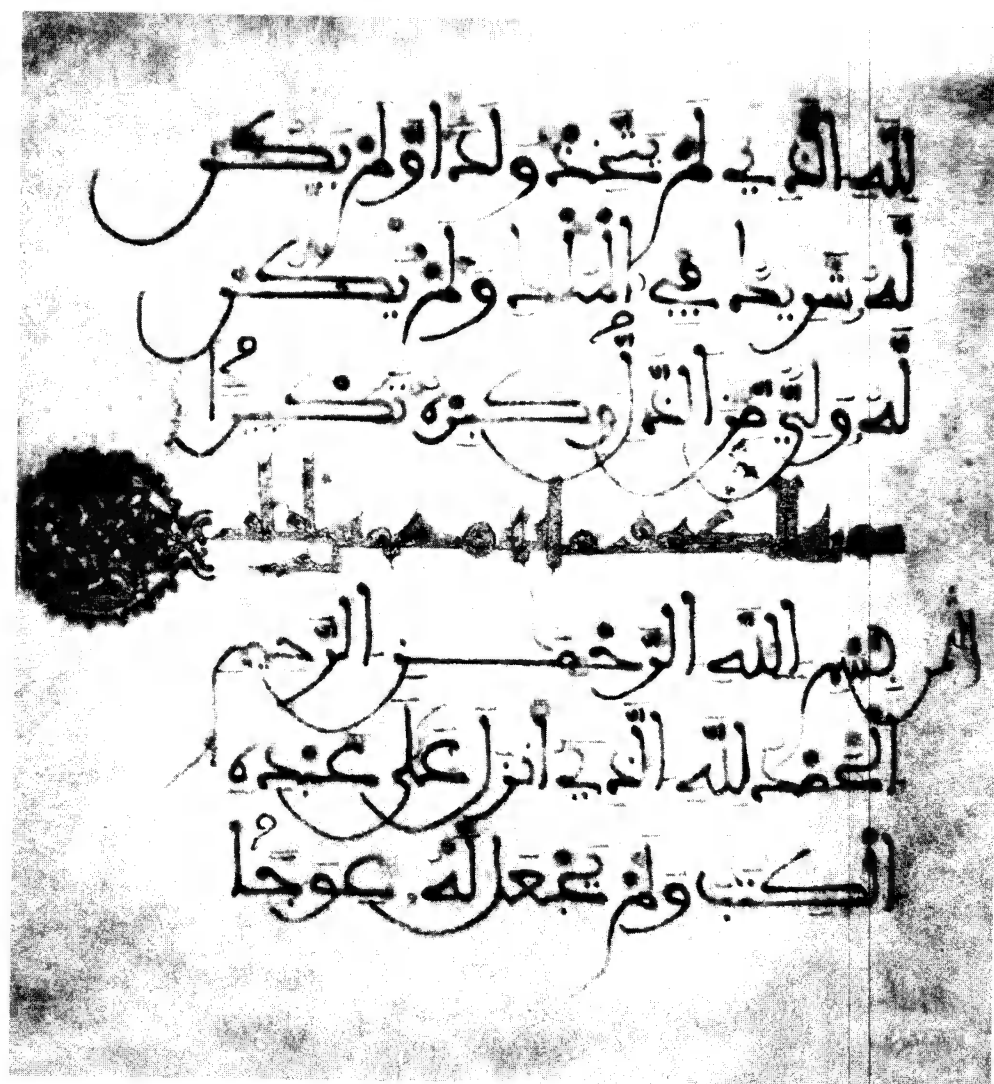 لله الذي لم يتخذ ولدا ولم يكن
له شريك في الملك ولم يكن
له ولي من الذل وكبره تكبيرا
سورة الكهف
بسم الله الرحمن الرحيم
الحمد لله الذي انزل على عبده
الكتب ولم يجعل له عوجا